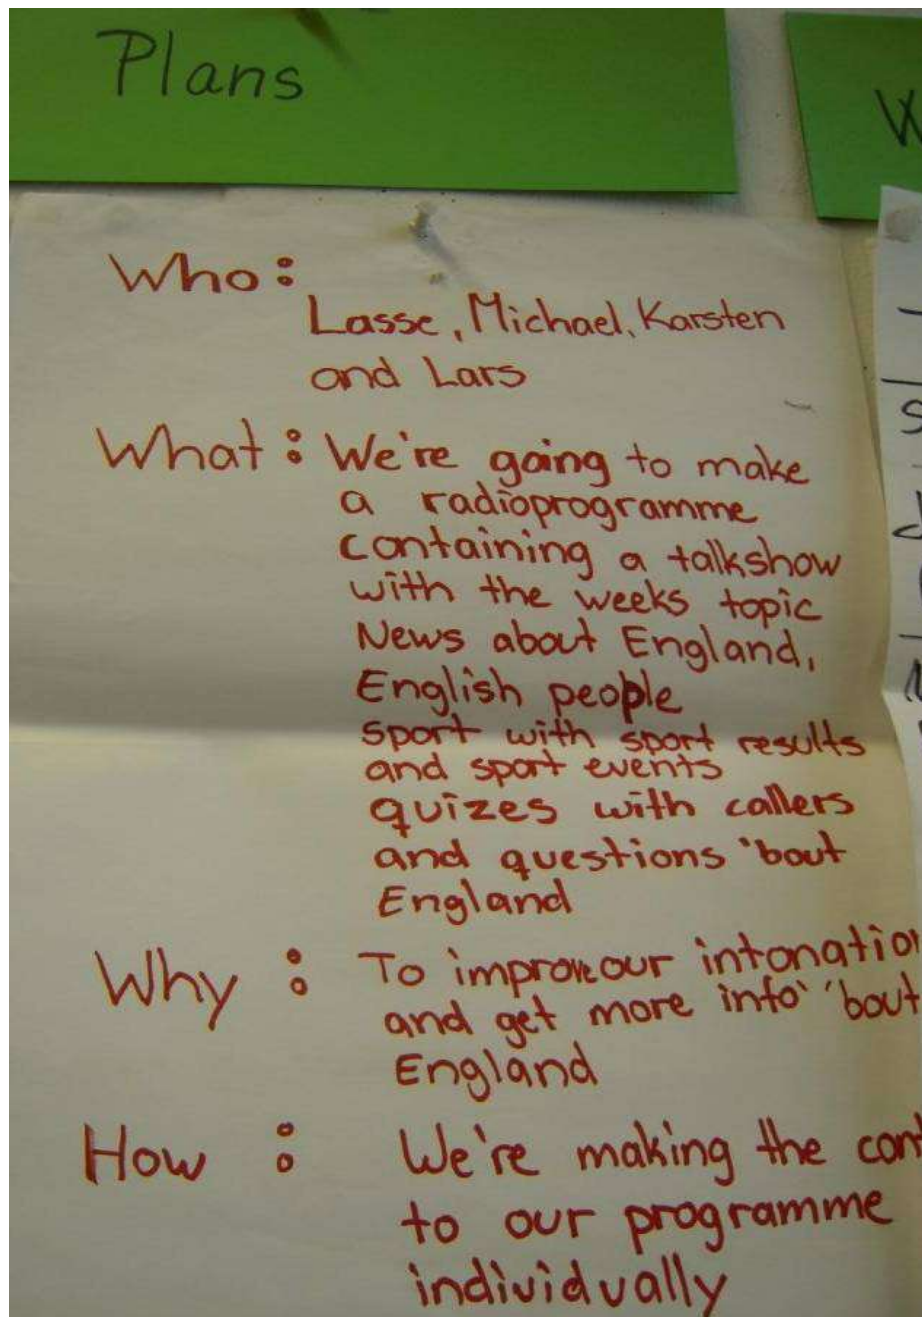 Plans
Who:
Lasse, Michael, Karsten
and Lars
What: We're going to make
a radioprogramme
containing a talkshow
with the weeks topic
News about England,
English people
sport with sport results
and sport events
quizes with callers
and questions 'bout
England
Why: To improve our intonation
and get more info' 'bout
England
How: We're making the
to our programme
individually